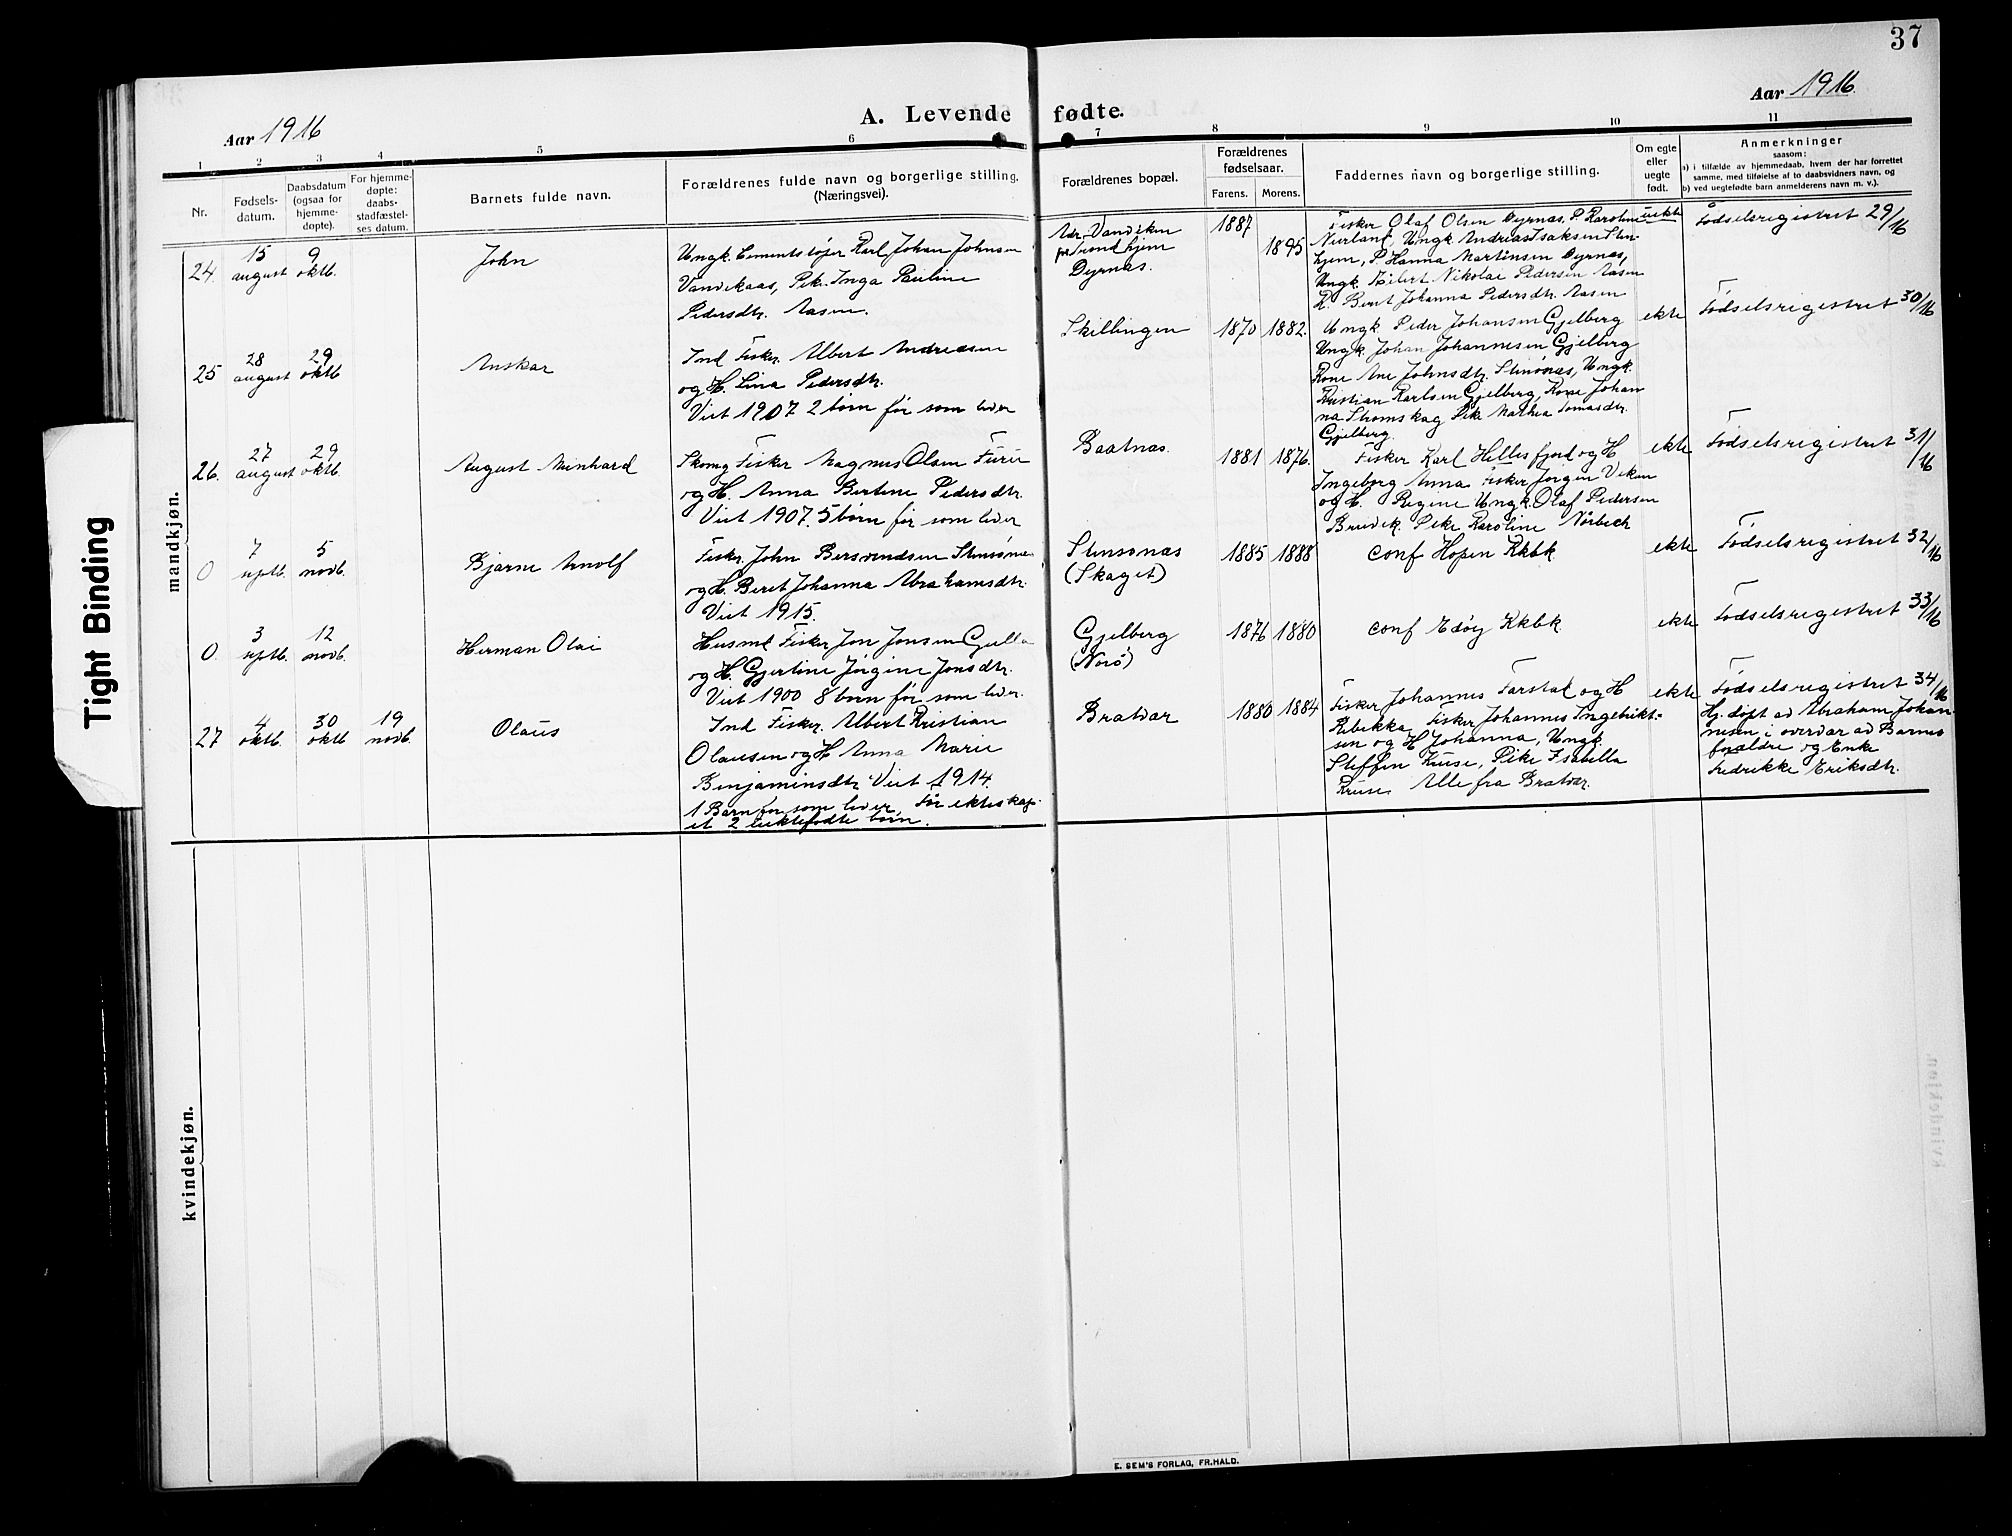 37
Aar 1916
A. Levende fødte.
Aar 1916.
1 2 3 4 5 6 7 8 9 10 11
Nr.
Fødsels-
datum.
Daabsdatum
(ogsaa for
hjemme-
døpte).
For hjemme-
døpte:
daabs-
stadfæstel-
ses datum.
Barnets fulde navn.
Forældrenes fulde navn og borgerlige stilling.
(Næringsvei).
Forældrenes bopæl.
Forældrenes
fødselsaar.
Farens. Morens.
Faddernes navn og borgerlige stilling.
Om egte
eller
uegte
født.
Anmerkninger
saasom:
a) i tilfælde av hjemmedaab, hvem der har forrettet
samme, med tilføielse af to daabsvidners navn, og
b) ved uegtefødte barn anmelderens navn m. v.).
mandkjøn.
24.
15
august
9
oktb.
John
Ungk. Cementstøper Karl Johan Johnsen
Vandekaas, Pike Inga Pauline
Pedersdtr. Aasen.
Adr. Vandviken
pr Trondhjem
Dyrnæs.
1887
1895
Fisker Olaf Olsen Dyrnæs, P. Karoline
Nerland, Ungk. Andreas Isaksen Sten-
hjem, P. Hanna Martinsen Dyrnæs,
Ungk. Hilbert Nikolai Pedersen Aasen
P. Beret Johanna Pedersdtr. Aasen
uekte
Fødselsregistret 29/16
25
28
august
29
oktb
Anskar
Ind. Fisker. Albert Andreasen
og H. Lina Pedersdtr.
Viet 1907 2 børn før som lever
Skillingen
1870 1882.
Ungk. Peder Johansen Gjelberg
Ungk. Johan Johannesen Gjelberg
Kone Ane Johnsdtr. Stensønæs, Ungk.
Kristian Karlsen Gjelberg, Kone Johan
na Stromskag Pike Mathea Tomasdtr.
Gjelberg.
ekte
Fødselsregistret 30/16
26.
27
august
29
oktb
August Meinhard
Skomg Fisker Magnus Olsen Furu
og H. Anna Bertine Pedersdtr.
Viet 1907. 5 børn før som lever
Baatnæs.
1881 1876.
Fisker Karl Hillesfjord og H
Ingeborg Anna Fisker Jørgen Veken
og H. Regine Ungk. Olaf Pedersen
Bruvik. Pike Karoline Nørbech
ekte
Fødselsregistret 31/16
0
7
septb.
5
novb.
Bjarne Arnolf
Fisker. John Bersvendsen Stensønæs
og H. Beret Johanna Abrahamsdtr.
Viet 1915.
Stensønæs
(Skaget)
1885 1888
conf Hopen Kkbk
ekte
Fødselsregistret 32/16
0.
3
septb.
12
novb.
Herman Olai
Husmd Fisker Jon Jonsen
og H. Gjertine Jørgine Jonsdtr.
Viet 1900 8 børn før som lever.
Gjelberg
(Norø)
1876 1880
conf Edøy Kkbk.
ekte
Fødselsregistret 33/16
27
4
oktb.
30
oktb
19
novb.
Olaus
Ind Fisker. Albert Kristian
Olausen og H Anna Marie
Benjaminsdtr Viet 1914.
1 Barn før som lever, før ekteskap-
et 2 uektefødte børn.
Bratvær
1880 1884
Fisker Johannes Farstad og H
Rebekka, Fisker Johannes Ingebrikt-
sen og H Johanna, Ungk.
Steffen Kruse, Pike Isabella
Kruse, Alle fra Bratvær.
ekte
Fødselsregistret 34/16
Hj. døpt av Abraham Johan-
nesen i overvær av Barnets
forældre og Enke
Fredrikke Eriksdtr.
kvindekjøn.
E. SEM'S FORLAG, FR.HALD.
Tight Binding